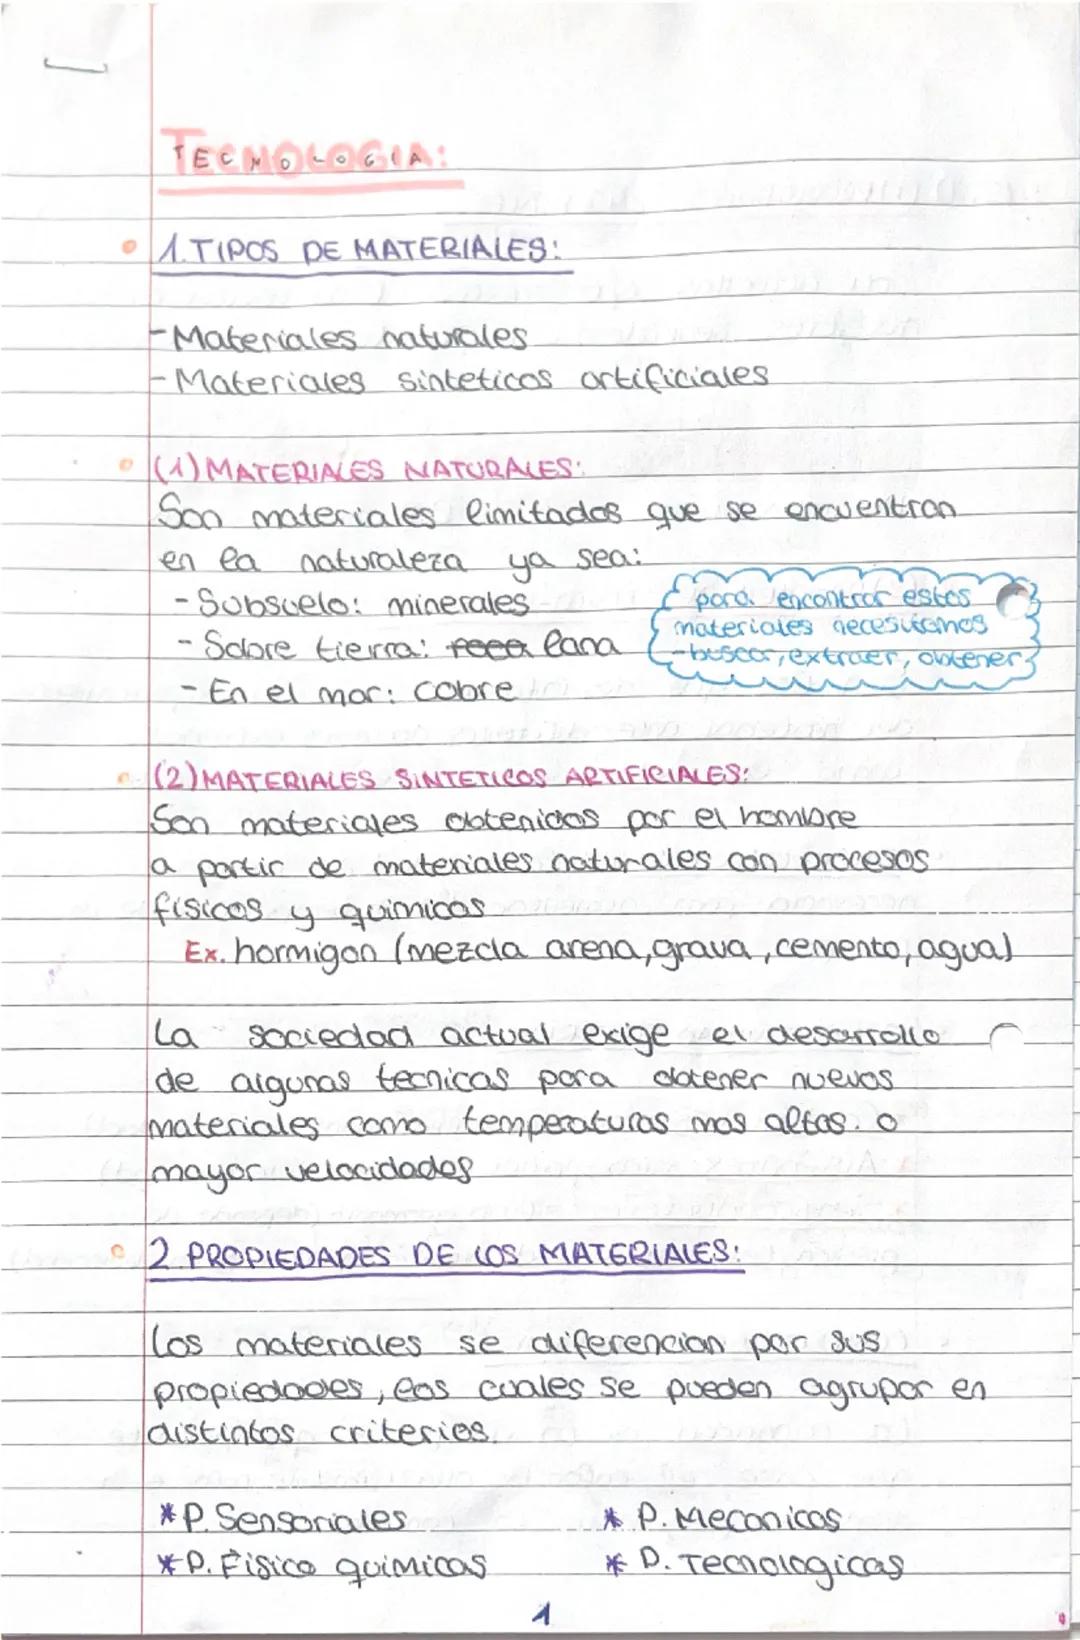 TECNOLOGIA:
1. TIPOS DE MATERIALES:
-Materiales naturales
-Materiales sinteticos artificiales
(1) MATERIALES NATURALES:
Son materiales limitados que se encuentran
en la naturaleza ya sea:
- Subsuelo: minerales
- Sobre tierra: lana
- En el mar: cobre
para encontrar estos
materiales necesitamos
-buscar, extraer, obtener
(2) MATERIALES SINTETICOS ARTIFICIALES:
Son materiales obtenidos por el hombre
a partir de materiales naturales con procesos
físicos y quimicos
Ex. hormigon (mezcla arena, grava, cemento, agua)
La sociedad actual exige el desarrollo
de algunas tecnicas para obtener nuevos
materiales como temperaturas mas altas. o
mayor velocidades
2. PROPIEDADES DE LOS MATERIALES:
Los materiales se diferencian por sus
propiedades, las cuales se pueden agrupar en
distintos criterios.
*P. Sensoriales
* P. Mecanicas
*P. Físico quimicas
* P. Tecnologicas
1